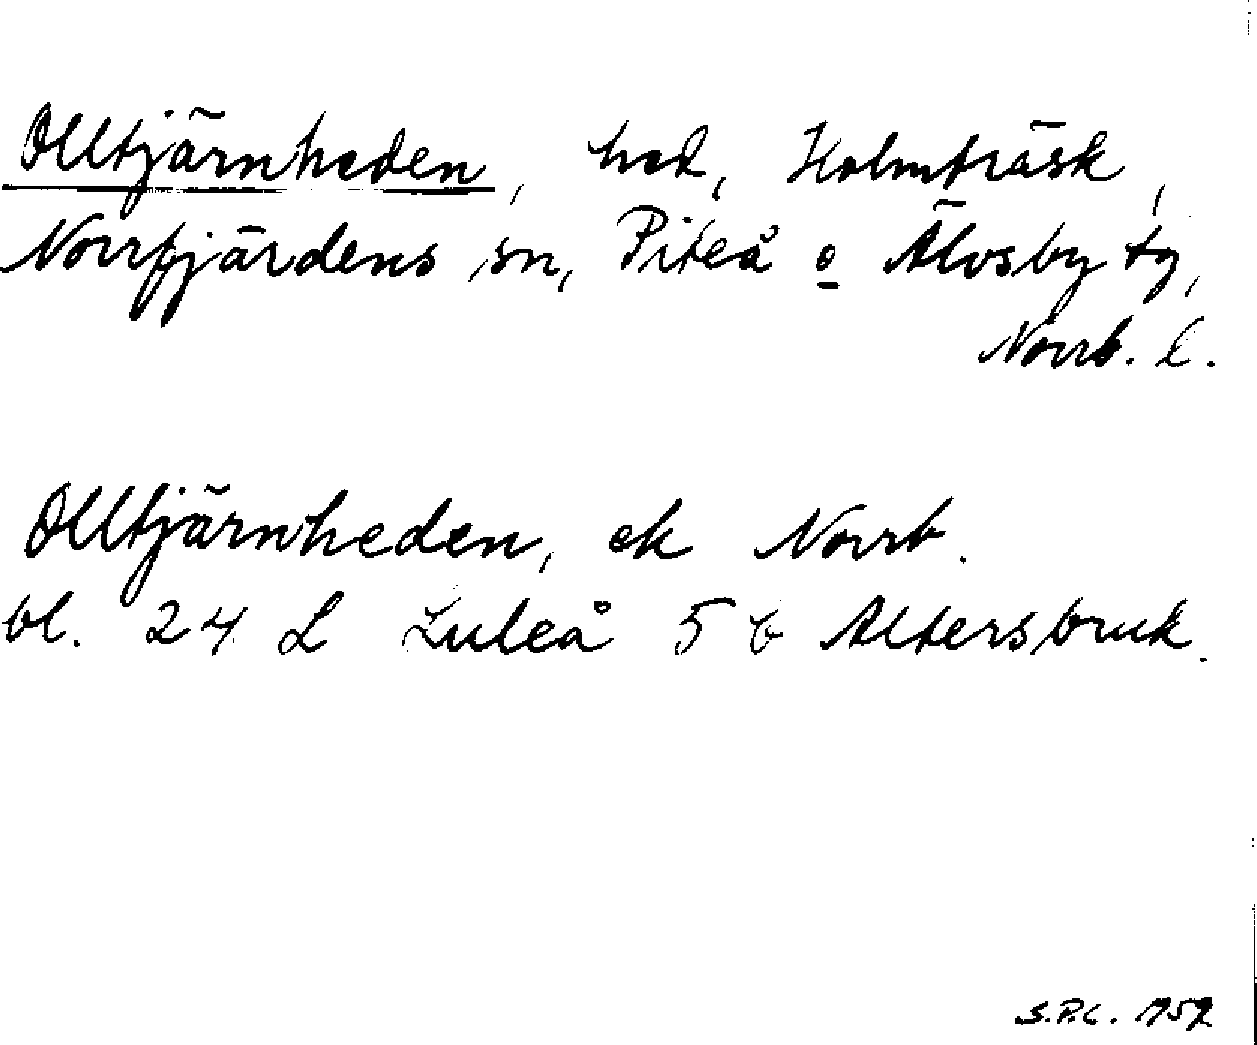 Olltjärnheden, hed, Holmträsk,
Norrfjärdens sn, Piteå o Älvsby tg,
Norrb. l.
Olltjärnheden, ek Norrb.
bl. 24 L Luleå 5 b Altersbruk.
S.P.L. 1959